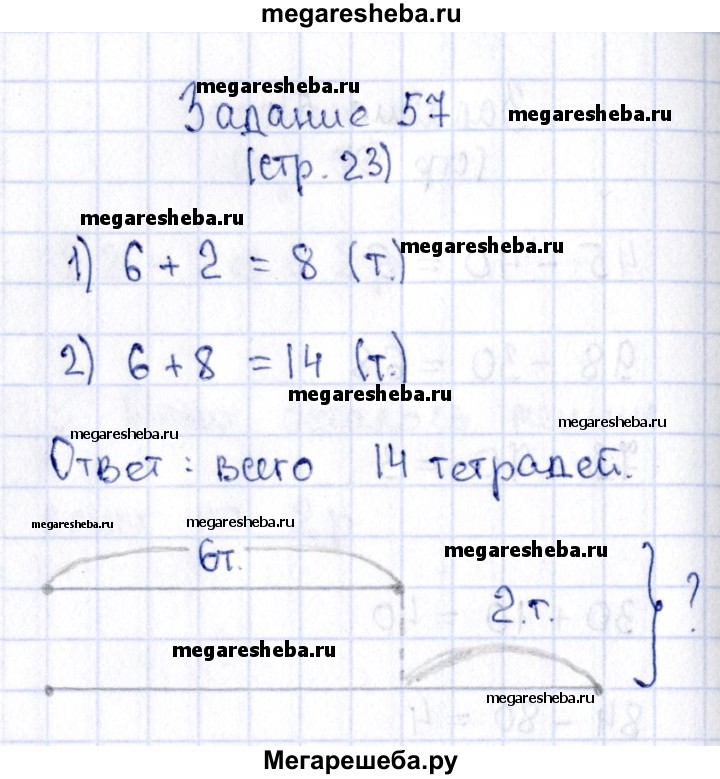 megaresheba.ru
megaresheba.ru
Задание 57
megaresheba.ru
(стр. 23)
megaresheba.ru
megaresheba.ru
1) 6 + 2 = 8 (т.)
2) 6 + 8 = 14 (т.)
megaresheba.ru
megaresheba.ru
megaresheba.ru
Ответ: всего 14 тетрадей.
megaresheba.ru
megaresheba.ru
megaresheba.ru
6т.
2.т.
?
megaresheba.ru
megaresheba.ru
Мегарешеба.ру